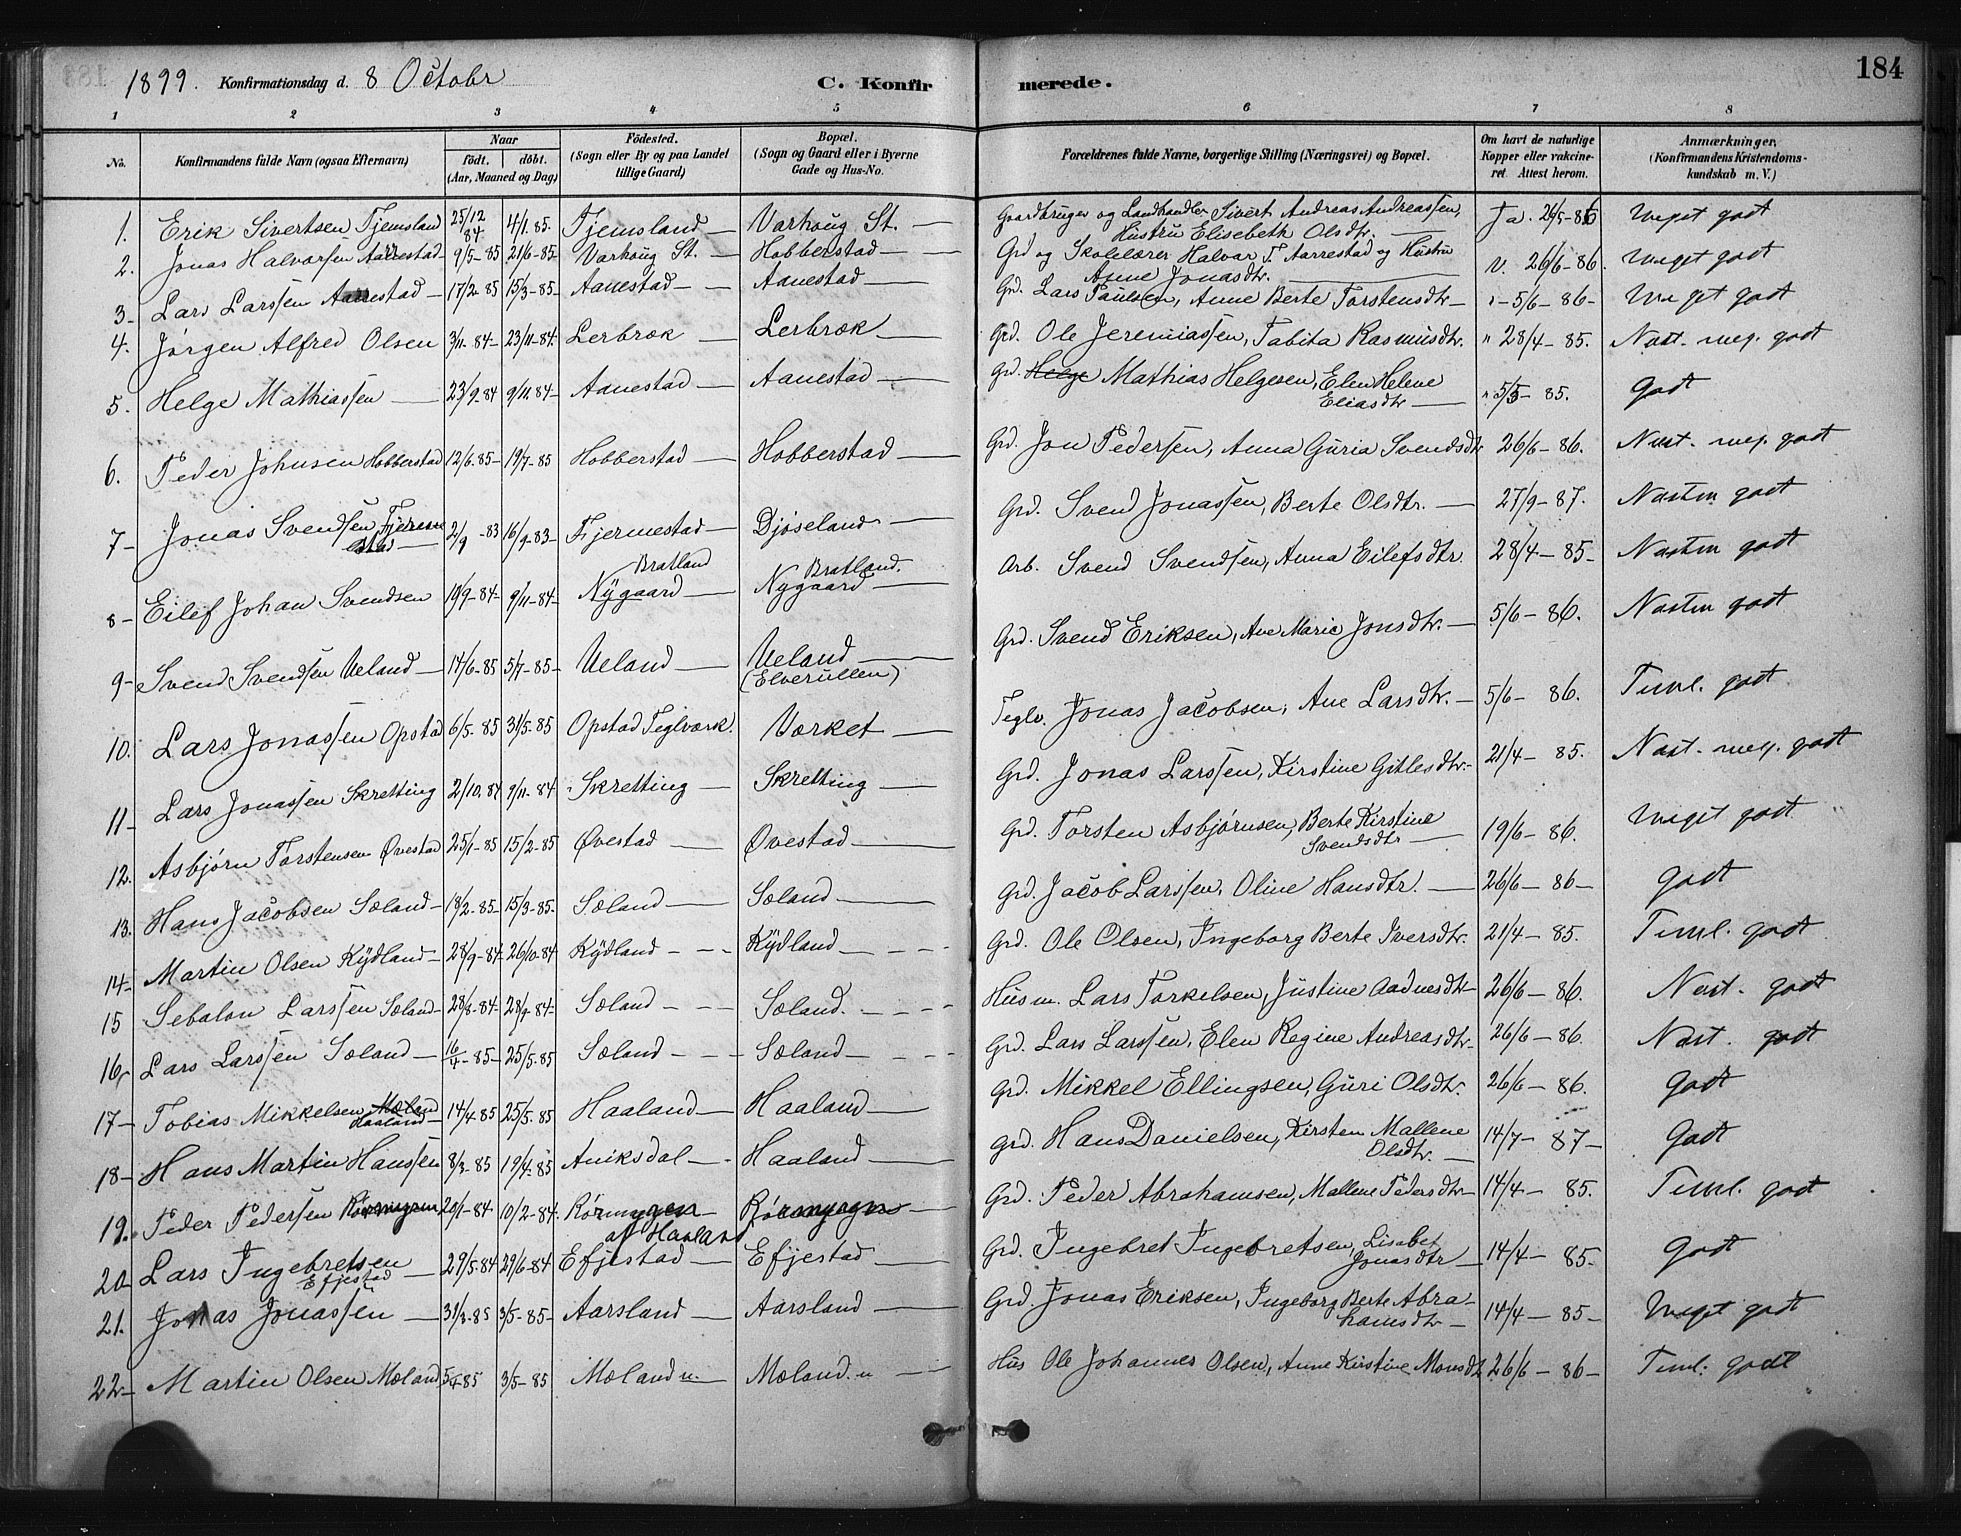 1899. Konfirmationsdag d. 8 Octobr C. Konfirmerede. 184
1 2 3 4 5 6 7 8
No. Konfirmandens fulde Navn (ogsaa Efternavn) Naar födt. döbt. (Aar, Maaned og Dag) Födested. (Sogn eller By og paa Landet tillige Gaard) Bopæl. (Sogn og Gaard eller i Byerne Gade og Hus-No. Forældrenes fulde Navne, borgerlige Stilling (Næringsvei) og Bopæl. Om havt de naturlige Kopper eller vakcineret. Attest herom. Anmærkninger, (Konfirmandens Kristendomskundskab m. V.)
1. Erik Sivertsen Tjemsland 25/12 84 4/1. 85. Tjemsland Varhoug St. Gaardbruger og Landhandler Sivert Andreas Andreassen, Hustru Elisebeth Olsdtr. Ja. 26/5-86 Meget godt
2. Jonas Halvorsen Aarrestad 9/5-85 21/6-85 Varhoug St. Hobberstad Grd og Skolelærer Halvar T. Aarrestad og Hustru Anne Jonasdtr. V. 26/6-86. Meget godt
3. Lars Larssen Aanestad 17/2 85 15/3-85 Aanestad Aanestad Grd. Lars Paulsen, Anne Berte Torstensdtr " -5/6-86- Meget godt
4. Jørgen Alfred Olsen 3/11-84 23/11-84 Lerbræk Lerbræk Grd. Ole Jeremiassen, Tabita Rasmusdtr. " 28/4-85. Næst. meg. godt
5. Helge Mathiassen 23/9-84 9/11.84 Aanestad Aanestad Grd. Helge Mathias Helgesen, Elen Helene Eliasdtr " 5/5-85. Godt
6. Peder Johnsen Hobberstad 12/6.85 19/7-85 Hobberstad Hobberstad Grd. Jon Pedersen, Anna Guria Svendsdtr 26/6-86. Næst. meg. godt
7 Jonas Svendsen Fjermestad 2/9-83 16/9-83 Fjermestad Djøseland Grd. Svend Jonassen, Berte Olsdtr. 27/9-87. Næsten godt
8 Eilef Johan Svendsen 10/9-84 9/11-84 Bratland Nygaard Bratland. Nygaard Arb. Svend Svendsen, Anna Eilefsdtr. 28/4-85 Næsten godt
9 Svend Svendsen Ueland 14/6-85 5/7-85 Ueland Ueland (Elverullen) Grd. Svend Eriksen, Ane Marie Jonsdtr. 5/6-86. Næsten godt
10. Lars Jonassen Opstad 6/5-85 31/5-85 Opstad Teglværk. Værket Teglv. Jonas Jacobsen, Ane Larsdtr. 5/6-86. Teml. godt
11 Lars Jonassen Skretting 2/10.84 9/11-84 Skretting Skretting Grd. Jonas Larssen, Kirstine Gitlesdtr. 21/4-85. Næst. meg. godt
12. Asbjørn Torstensen Øvestad 25/1-85 15/2-85 Øvestad Øvestad Grd. Torsten Asbjørnsen, Berte Kirstine Svendsdtr 19/6-86. Meget godt
13. Hans Jacobsen Sæland 18/2-85 15/3-85. Sæland Sæland Grd. Jacob Larssen, Oline Hansdtr. 26/6-86 godt
14 Martin Olsen Kydland 28/9-84 26/10-84 Kydland Kydland Grd. Ole Olsen, Ingeborg Berte Iversdtr. 21/4-85. Teml. godt
15 Sebalon Larssen Sæland 28/8-84 28/9-84 Sæland Sæland. Husm. Lars Torkelsen, Justine Aadnesdtr 26/6-86. Næst. godt
16 Lars Larssen Sæland 16/4-85 25/5-85 Sæland Sæland Grd. Lars Larssen, Elen Regine Andreasdtr 26/6-86. Næst. godt
17 Tobias Mikkelsen Mæland Haaland 14/4 85 25/5-85 Haaland Haaland Grd. Mikkel Ellingsen, Guri Olsdtr. 26/6-86. Godt
18 Hans Martin Hanssen 8/3-85 19/4-85 Aniksdal Haaland Grd. Hans Danielsen, Kirsten Mallene Olsdtr. 14/7-87 Godt
19. Peder Pedersen Rørmyren 20/1-84 10/2-84 Rørmyren af Haaland Rørmyren Grd. Peder Abrahamsen, Mallene Pedersdtr 14/4-85. Teml. godt
20 Lars Ingebretsen Efjestad 29/5-84 29/6-84 Efjestad Efjestad Grd. Ingebret Ingebretsen, Lisabet Jonasdtr 14/4-85. Godt
21. Jonas Jonassen 31/3-85 3/5-85 Aarsland Aarsland Grd. Jonas Eriksen, Ingeborg Berte Abrahamsdtr 14/4-85 Meget godt
22 Martin Olsen Mæland 5/4 85 3/5-85 Mæland n. Mæland. n Hus Ole Johannes Olsen, Anne Kirstine Monsdt 26/6-86 Teml. godt